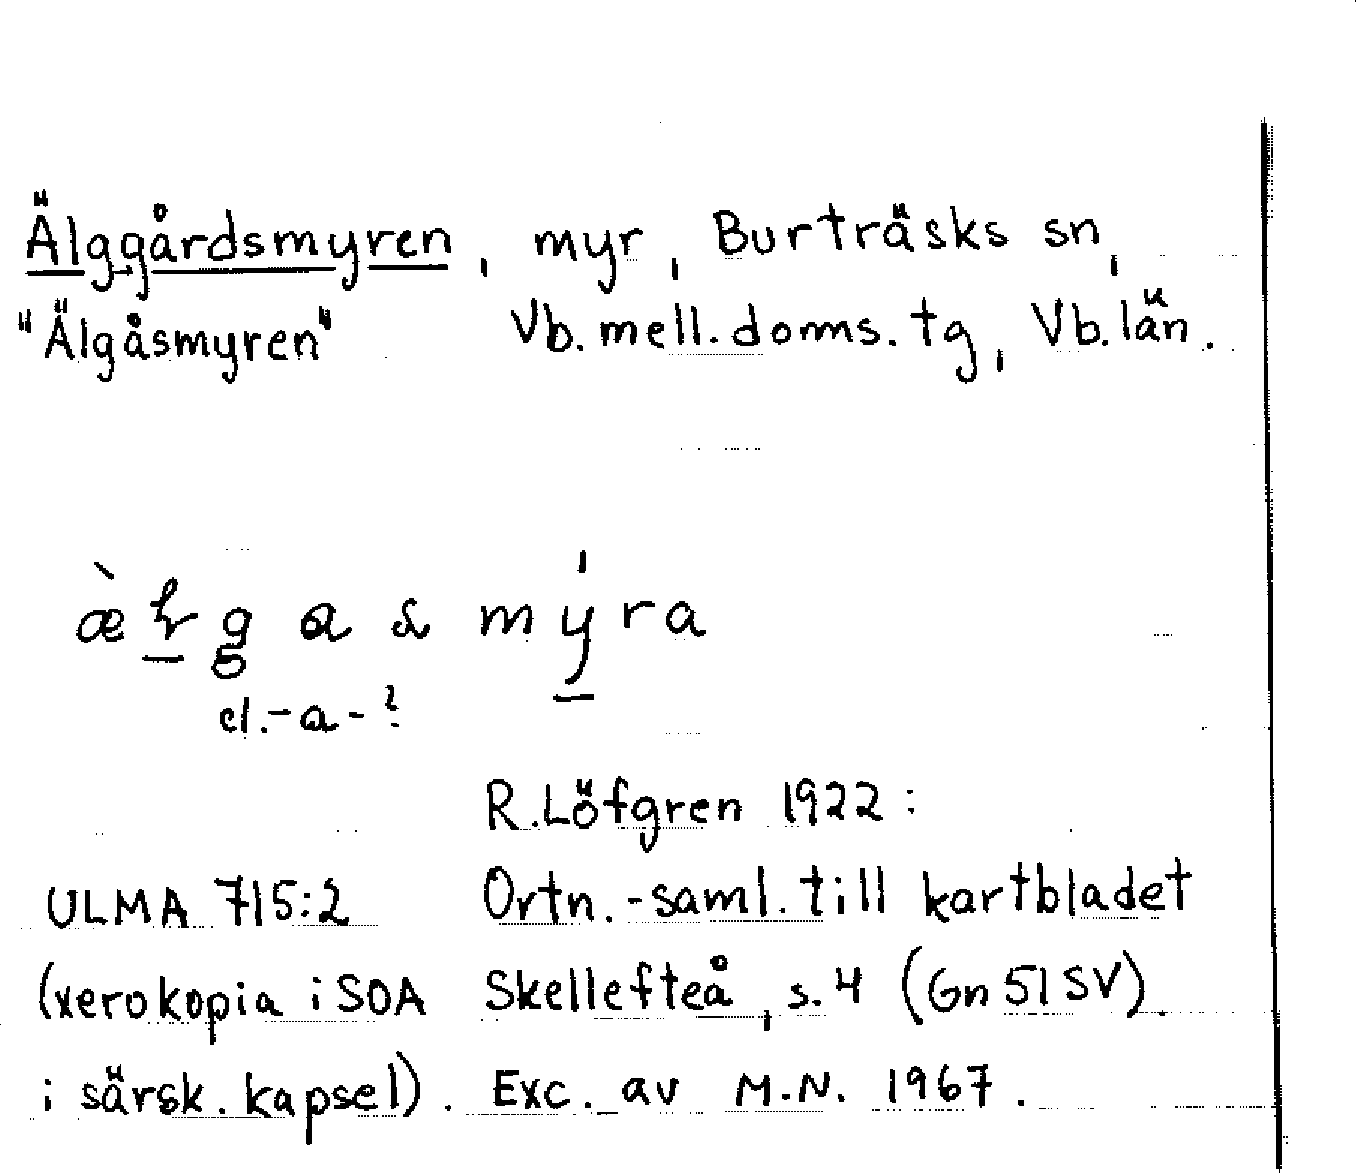 Älggårdsmyren, myr, Burträsks sn,
"Älgåsmyren" Vb. mell. doms. tg, Vb. län.
el. -a- ?
R. Löfgren 1922:
ULMA 715:2 Ortn.-saml. till kartbladet
(xerokopia i SOA Skellefteå, s. 4 (Gn 51 SV).
i särsk. kapsel). Exc. av M.N. 1967.